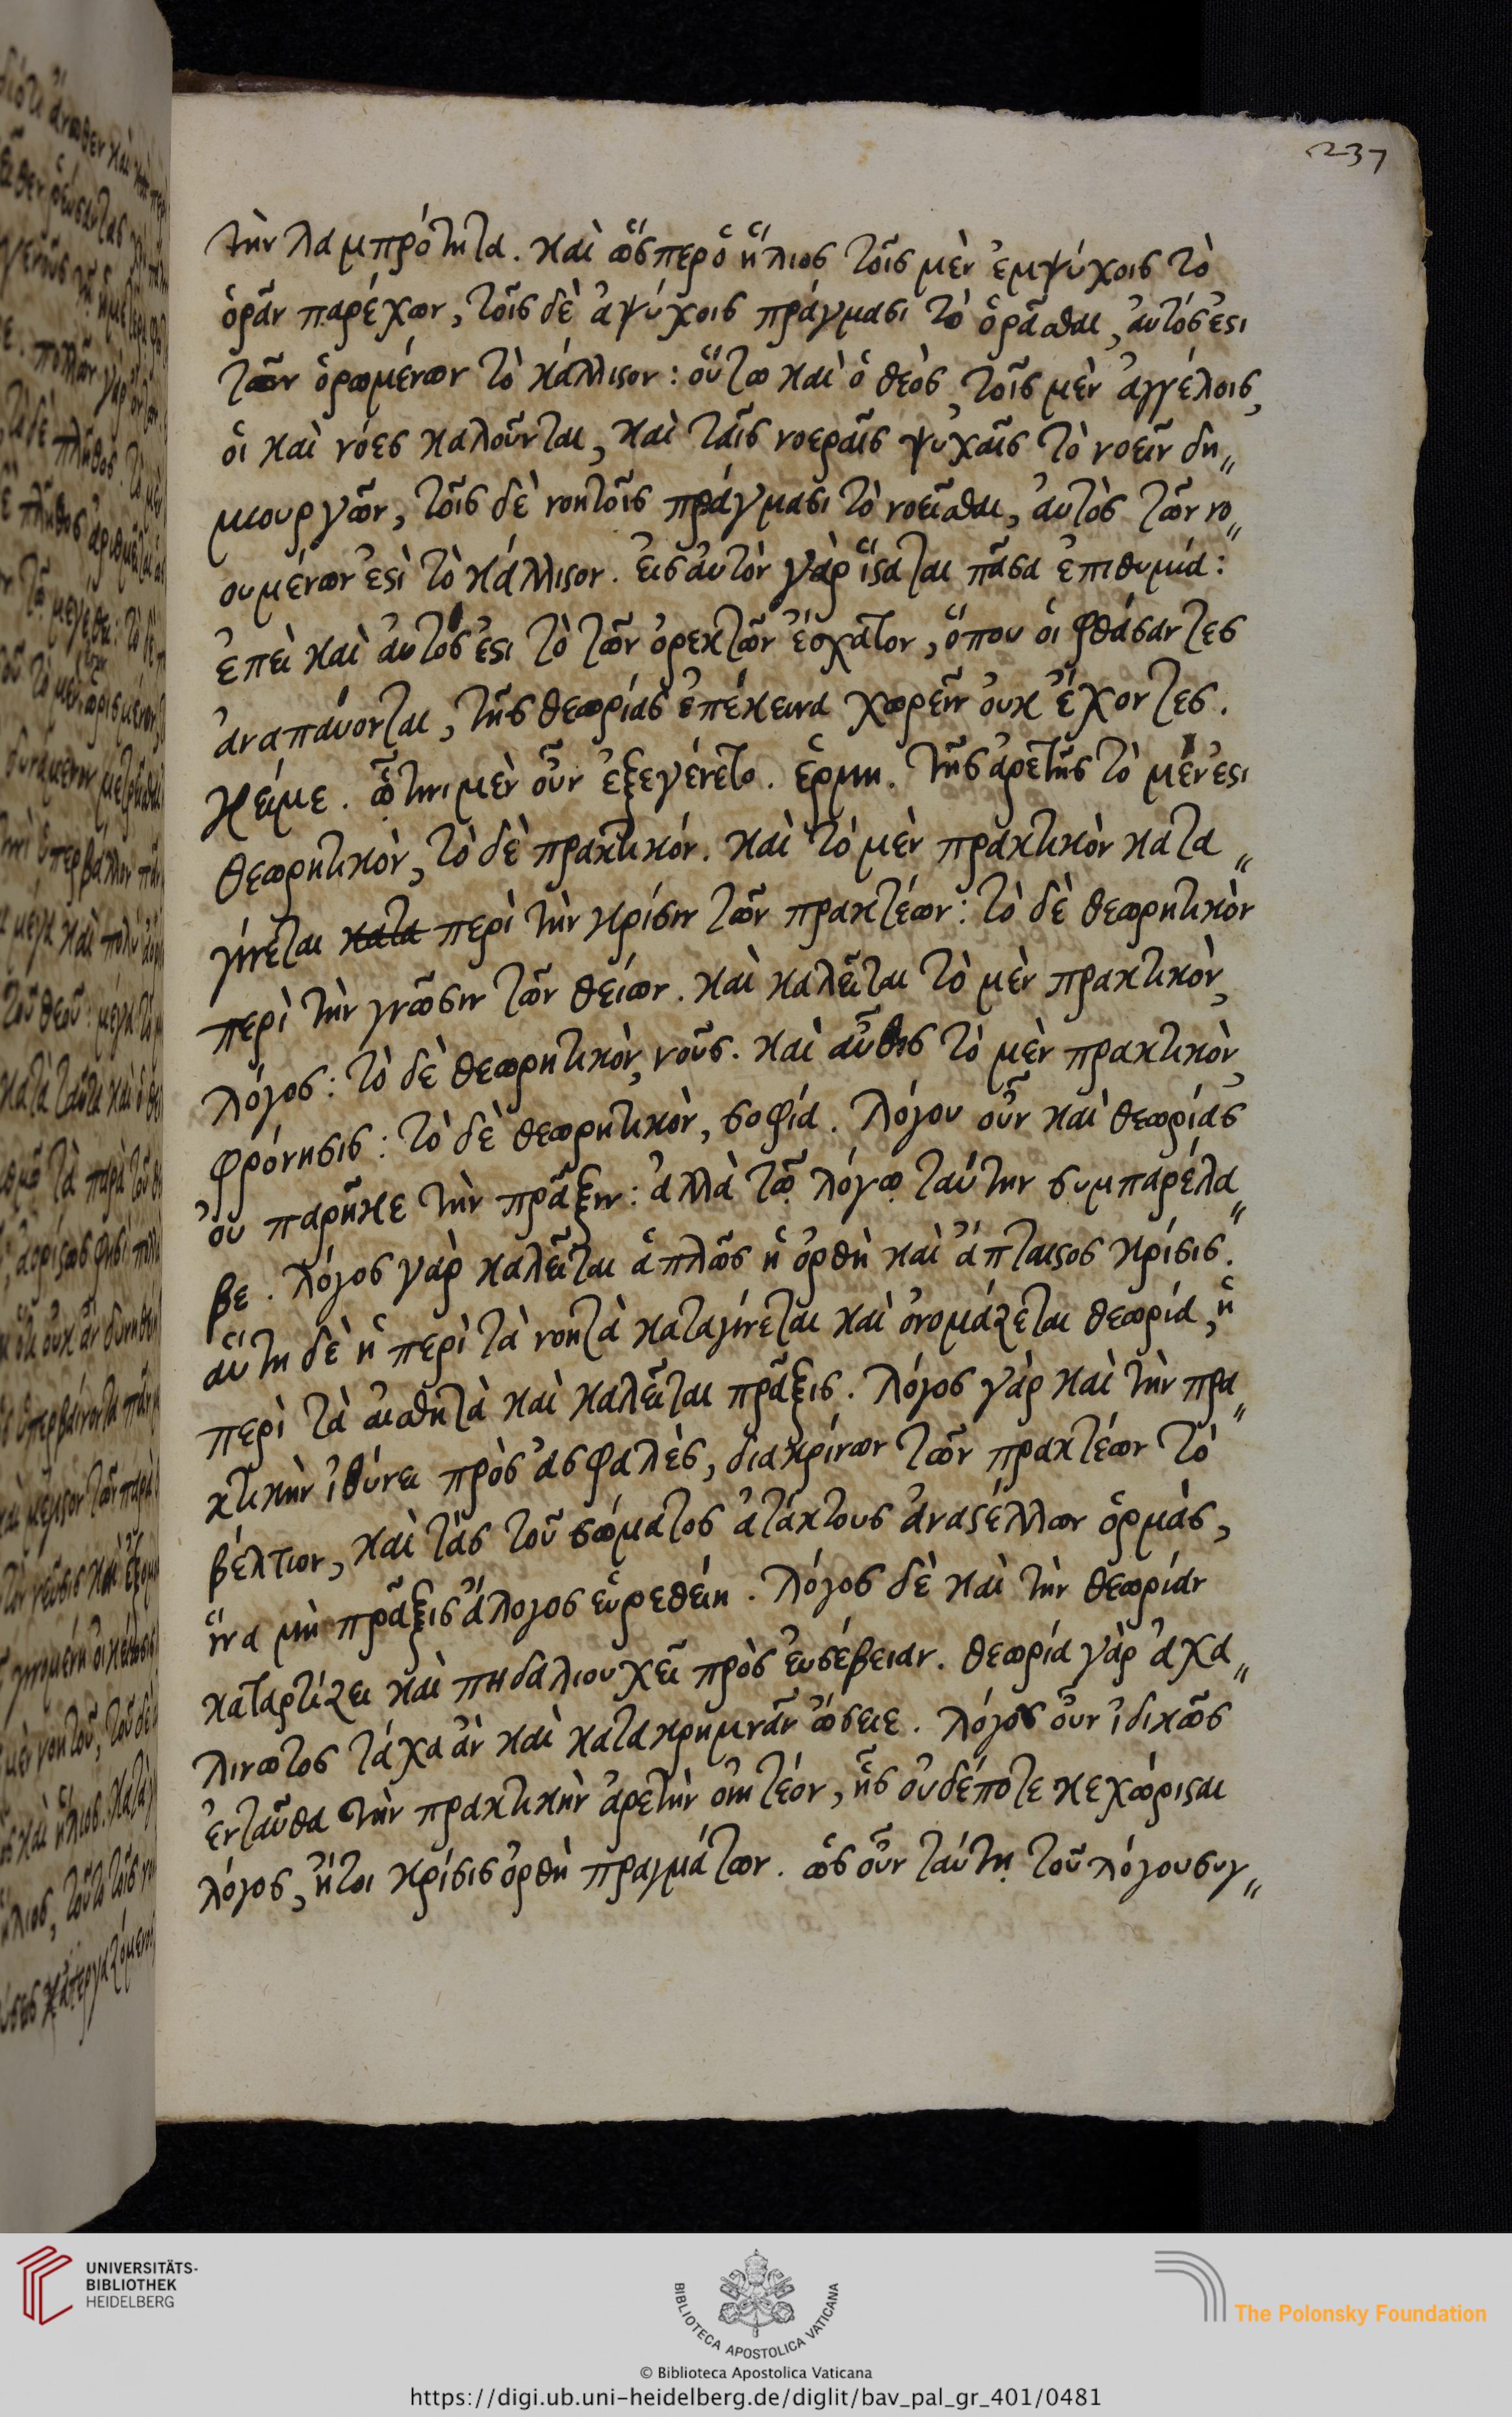 237
τὴν λαμπρότητα. καὶ ὥσπερ ὁ ἥλιος τοῖς μὲν ἐμψύχοις τὸ
ὁρᾶν παρέχων, τοῖς δὲ ἀψύχοις πράγμασι τὸ ὁρᾶσθαι, αὐτός ἐστι
τῶν ὁρωμένων τὸ κάλλιστον: οὕτω καὶ ὁ θεὸς, τοῖς μὲν ἀγγέλοις,
οἱ καὶ νόες καλοῦνται, καὶ ταῖς νοεραῖς ψυχαῖς τὸ νοεῖν δη〃
μιουργῶν, τοῖς δὲ νοητοῖς πράγμασι τὸ νοεῖσθαι, αὐτὸς τῶν νο〃
ουμένων ἐστὶ τὸ κάλλιστον. εἰς αὐτὸν γὰρ ἵσταται πᾶσα ἐπιθυμία:
ἐπεὶ καὶ αὐτός ἐστι τὸ τῶν ὀρεκτῶν ἔσχατον, ὅπου οἱ φθάσαντες
ἀναπαύονται, τῆς θεωρίας ἐπέκεινα χωρεῖν οὐκ ἔχοντες.
κείμε. ᾧτινι μὲν οὖν ἐξεγένετο. ἑρμη. τῆς ἀρετῆς τὸ μέν ἐστι
θεωρητικὸν, τὸ δὲ πρακτικόν. καὶ τὸ μὲν πρακτικὸν κατα〃
γίνεται κατα περὶ τὴν κρίσιν τῶν πρακτέων: τὸ δὲ θεωρητικὸν
περὶ τὴν γνῶσιν τῶν θείων. καὶ καλεῖται τὸ μὲν πρακτικὸν,
λόγος: τὸ δὲ θεωρητικὸν, νοῦς. καὶ αὖθις τὸ μὲν πρακτικὸν,
φρόνησις: τὸ δὲ θεωρητικὸν, σοφία. λόγου οὖν καὶ θεωρίας
οὐ παρῆκε τὴν πρᾶξιν: ἀλλὰ τῷ λόγῳ ταύτην συμπαρέλα〃
βε. λόγος γὰρ καλεῖται ἁπλῶς ἡ ὀρθὴ καὶ ἄπταιστος κρίσις.
αὕτη δὲ ἡ περὶ τὰ νοητὰ καταγίνεται καὶ ὀνομάζεται θεωρία, ἢ
περὶ τὰ αἰσθητὰ καὶ καλεῖται πρᾶξις. λόγος γὰρ καὶ τὴν πρα〃
κτικὴν ἰθύνει πρὸς ἀσφαλὲς, διακρίνων τῶν πρακτέων τὸ
βέλτιον, καὶ τὰς τοῦ σώματος ἀτάκτους ἀναστέλλων ὁρμὰς,
ἵνα μὴ πρᾶξις ἄλογος εὑρεθείη. λόγος δὲ καὶ τὴν θεωρίαν
καταρτίζει καὶ πηδαλιουχεῖ πρὸς εὐσέβειαν. θεωρία γὰρ ἀχα〃
λίνωτος τάχα ἂν καὶ κατακρημνᾶν ὤσειε. λόγος οὖν ἰδικῶς
ἐνταῦθα τὴν πρακτικὴν ἀρετὴν οἰητέον, ἧς οὐδέποτε κεχώρισται
λόγος, ἤτοι κρίσις ὀρθὴ πραγμάτων. ὡς οὖν ταύτῃ τοῦ λόγου συγ〃
UNIVERSITÄTS-
BIBLIOTHEK
HEIDELBERG
BIBLIOTECA APOSTOLICA VATICANA
© Biblioteca Apostolica Vaticana
The Polonsky Foundation
https://digi.ub.uni-heidelberg.de/diglit/bav_pal_gr_401/0481